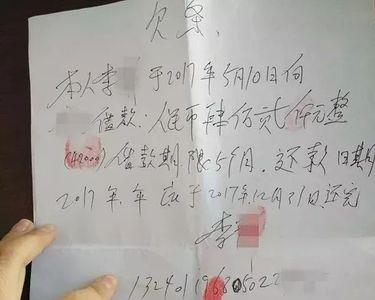 欠条
本人李 于2017年5月10日向
借款:人民币肆仟贰佰元整
(4200) 借款期限5个月.还款日期
2017年.年应于2017年12月31日还完
李
132401196805022